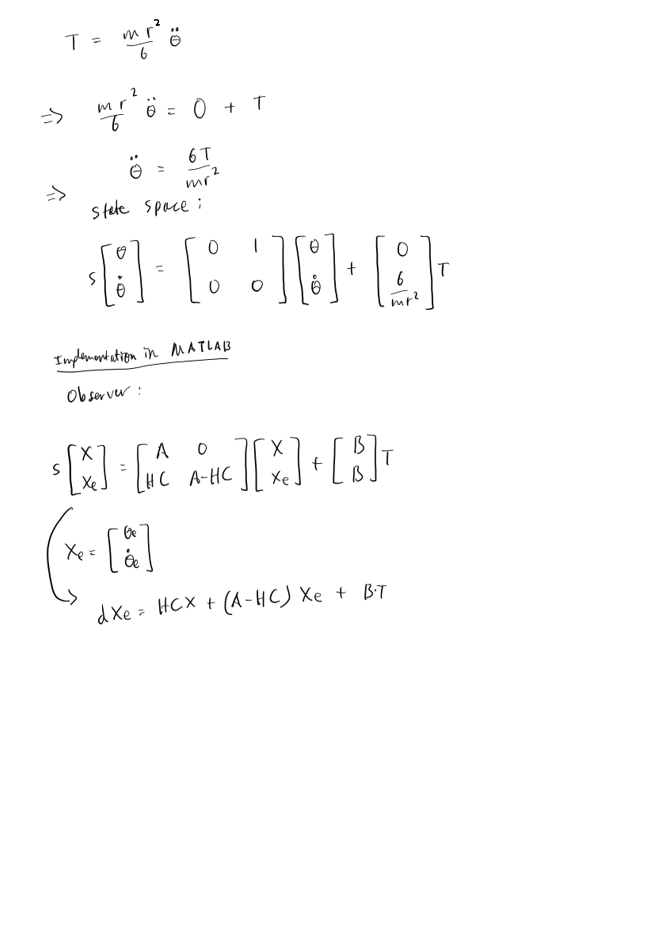 T = mr²/6 θ̈
=> mr²/6 θ̈ = 0 + T
=> θ̈ = 6T/mr²
state space :
s [θ; θ̇] = [0 1; 0 0] [θ; θ̇] + [0; 6/mr²] T
Implementation in MATLAB
Observer :
s [X; Xe] = [A 0; HC A-HC] [X; Xe] + [B; B] T
Xe = [θe; θ̇e]
dXe = HCX + (A-HC) Xe + B·T